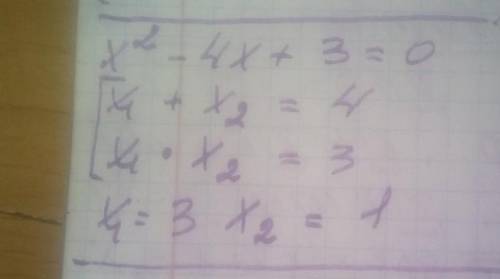 x² - 4x + 3 = 0
x₁ + x₂ = 4
x₁ · x₂ = 3
x₁ = 3 x₂ = 1